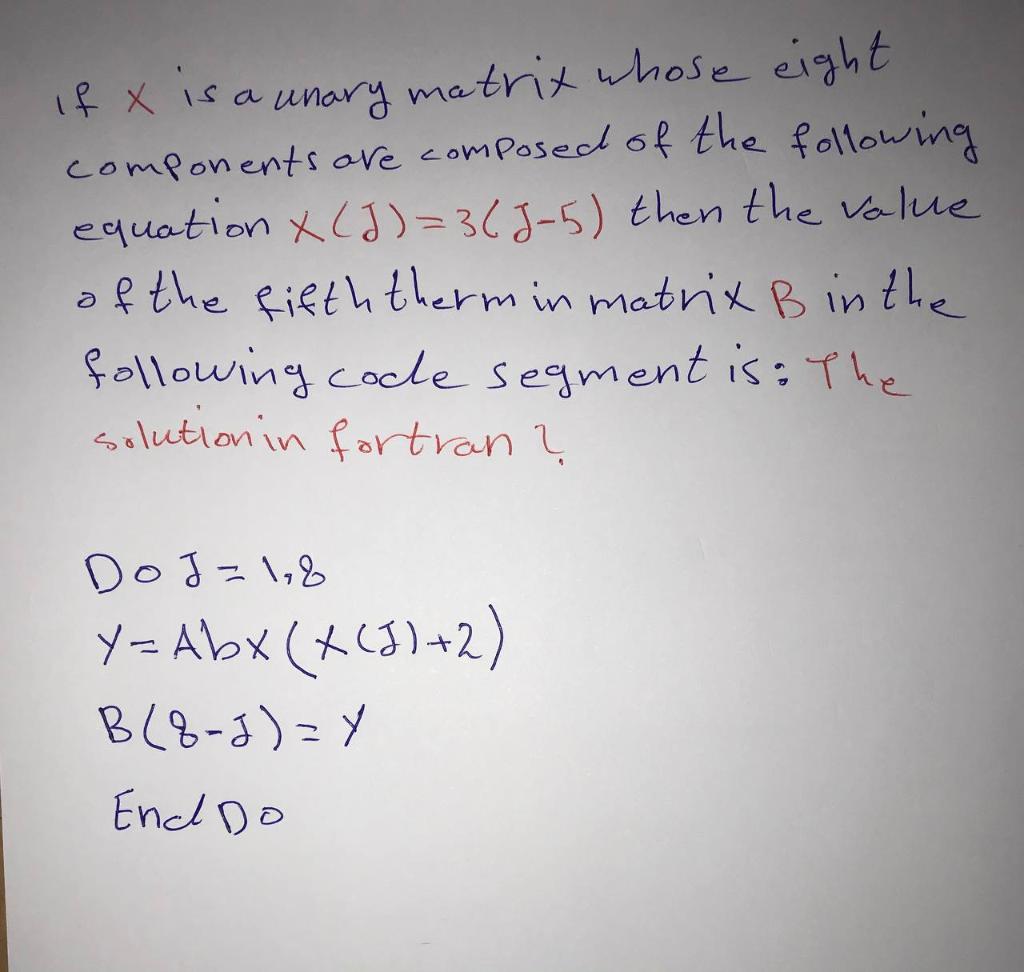 if x is a unary matrix whose eight
components are composed of the following
equation x(J)=3(J-5) then the value
of the fifth therm in matrix B in the
following code segment is: The
solution in fortran ?
Do J = 1,8
Y = Abx(x(J)+2)
B(8-J) = Y
End Do